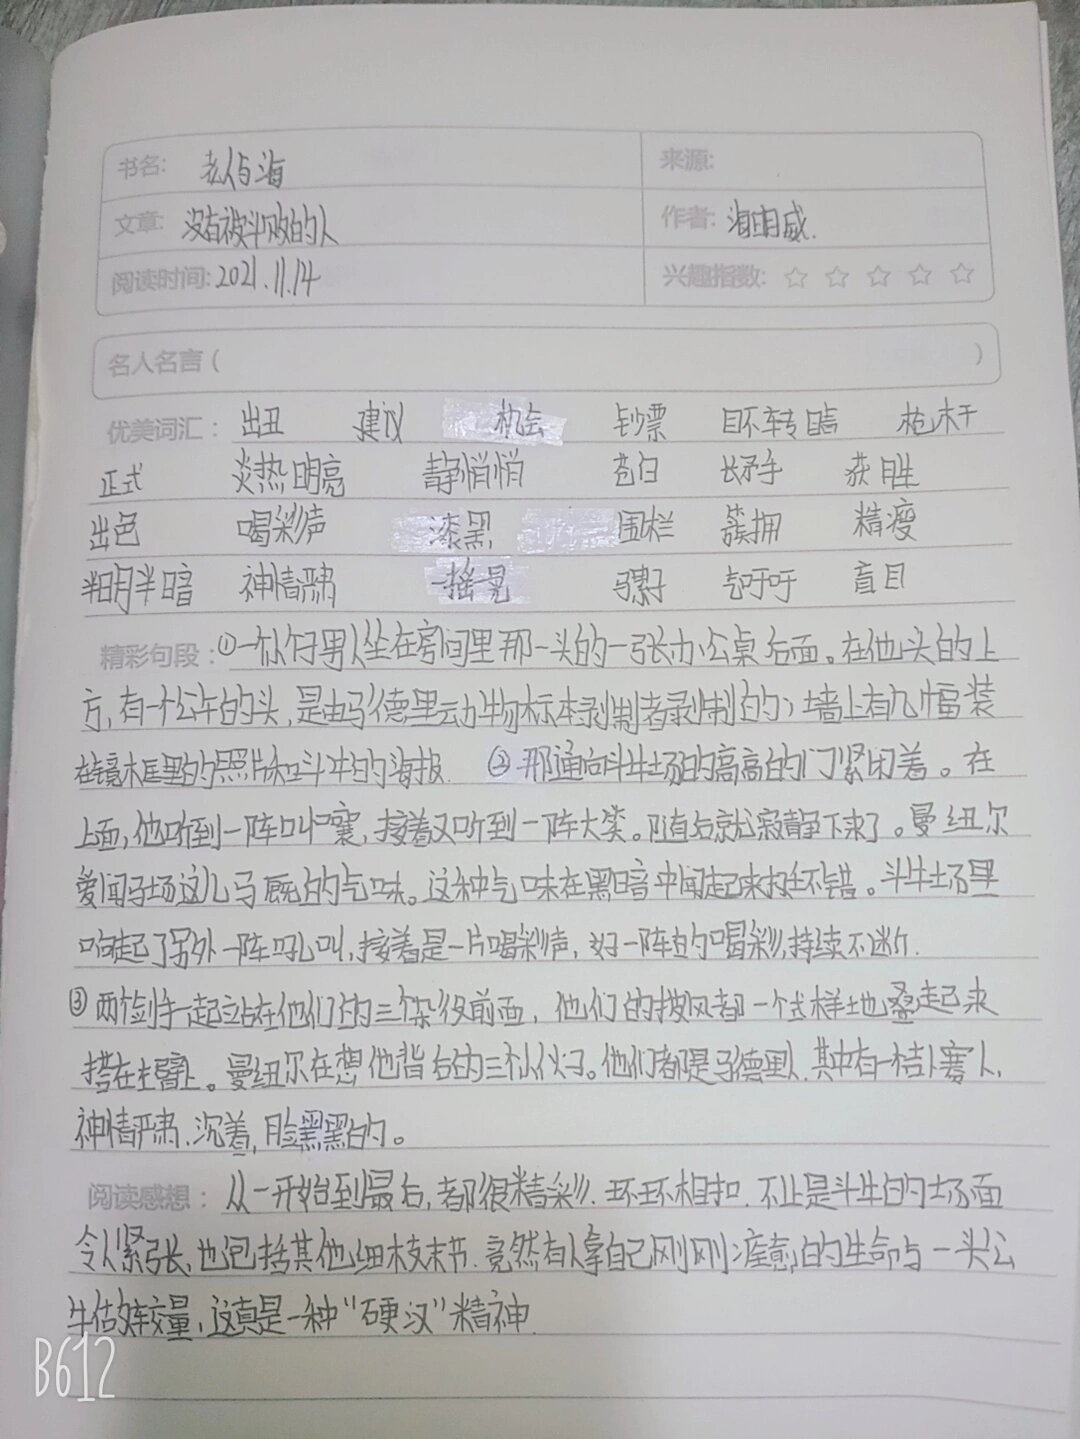 书名: 老人与海 来源:
文章: 没有被斗败的人 作者: 海明威.
阅读时间: 2021.11.14 兴趣指数: ☆ ☆ ☆ ☆ ☆
名人名言( )
优美词汇: 出丑 建议 机会 钞票 目不转睛 枪杆
正式 炎热明亮 静悄悄 苍白 长矛手 获胜
出色 喝彩声 漆黑 围栏 簇拥 精瘦
半明半暗 神情严肃 摇晃 骡子 气吁吁 盲目
精彩句段: ①一个小个子男人坐在房间里那一头的一张办公桌后面。在他头的上
方,有一个公牛的头,是由马德里动物标本剥制者剥制的、墙上有几幅装
在镜木框里的照片和斗牛的海报. ②那通向斗牛场的高高的门紧闭着。在
上面,他听到一阵叫嚷,接着又听到一阵大笑。随后就寂静下来了。曼纽尔
爱闻马场这儿马厩的气味。这种气味在黑暗中闻起来挺不错。斗牛场里
响起了另外一阵吼叫,接着是一片喝彩声,好一阵的喝彩,持续不断.
③两个剑手一起站在他们的三个杂役前面,他们的披风都一个式样地叠起来
搭在左臂上。曼纽尔在想他背后的三个小伙子。他们都是马德里人,其中有一个吉卜赛人,
神情严肃、沉着,脸黑黑的。
阅读感想: 从一开始到最后,都很精彩.环环相扣.不止是斗牛的场面
令人紧张,也包括其他细枝末节.竟然有人拿自己刚刚痊愈的生命与一头公
牛做较量,这真是一种“硬汉”精神.
B612